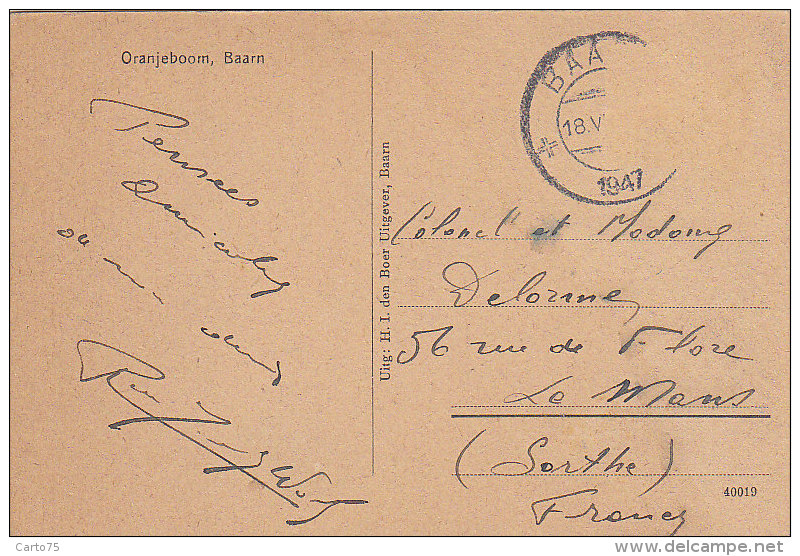 Oranjeboom, Baarn
Pensees
amicales
Uitg: H. I. den Boer Uitgever, Baarn
BAA
18.V
1947
Colonel et Madame
Delorme
56 rue de Flore
Le Mans
(Sarthe)
France
40019
Carto75
www.delcampe.net